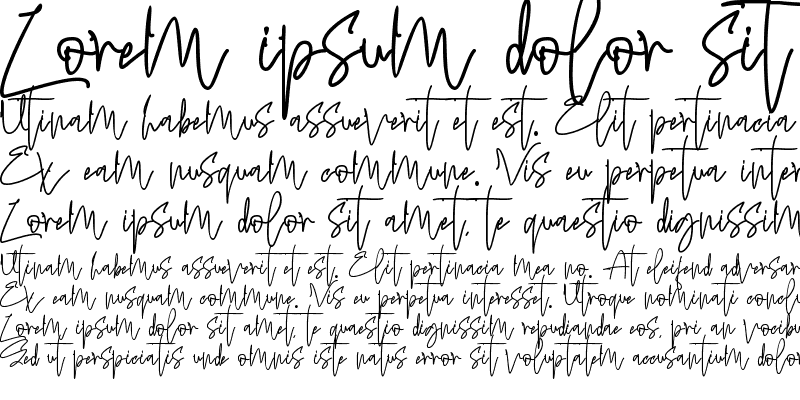 Lorem ipsum dolor sit
Utinam habemus assueverit et est. Elit pertinacia
Ex eam nusquam commune. Vis eu perpetua inter
Lorem ipsum dolor sit amet, te quaestio dignissim
Utinam habemus assueverit et est. Elit pertinacia mea no. At eleifend adversar
Ex eam nusquam commune. Vis eu perpetua interesset. Utroque nominati conclu
Lorem ipsum dolor sit amet, te quaestio dignissim repudiandae eos, pri an vocibu
Sed ut perspiciatis unde omnis iste natus error sit voluptatem accusantium dolor